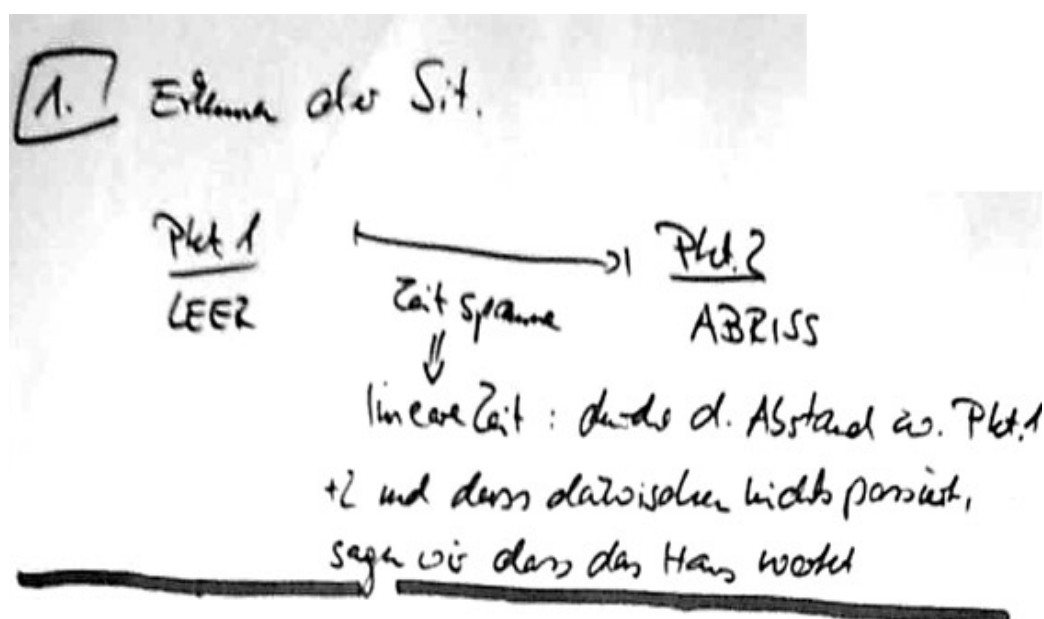 1. Erkennen der Sit.
Pkt 1 Pkt. 2
LEER Zeitspanne ABRISS
lineare Zeit : durch d. Abstand zw. Pkt. 1
+2 und dass dazwischen nichts passiert,
sagen wir dass das Haus wartet